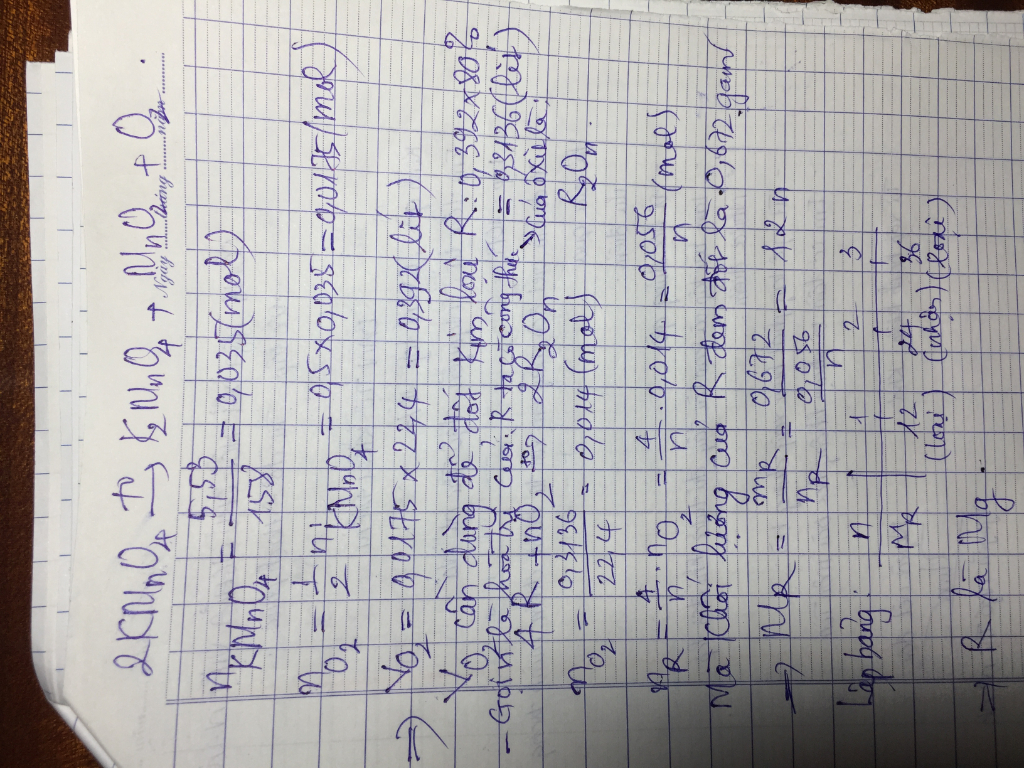 2KMnO4 t° → K2MnO4 + MnO2 + O2
Ngày ........ tháng ........ năm ........
nKMnO4 = 5,53/158 = 0,035(mol)
nO2 = 1/2 nKMnO4 = 0,5 x 0,035 = 0,0175(mol)
=> VO2 = 0,0175 x 22,4 = 0,392(lít)
VO2 cần dùng để đốt kim loại R: 0,392 x 80%
= 0,3136(lít)
- Gọi n là hóa trị của R ta có công thức của oxit là: R2On.
4R + nO2 → 2R2On
nO2 = 0,3136/22,4 = 0,014(mol)
nR = 4/n . nO2 = 4/n . 0,014 = 0,056/n (mol)
Mà khối lượng của R đem đốt là 0,672 gam
=> MR = mR/nR = 0,672/(0,056/n) = 12n
Lập bảng:
n | 1 | 2 | 3
MR | 12 (loại) | 24 (nhận) | 36 (loại)
=> R là Mg.